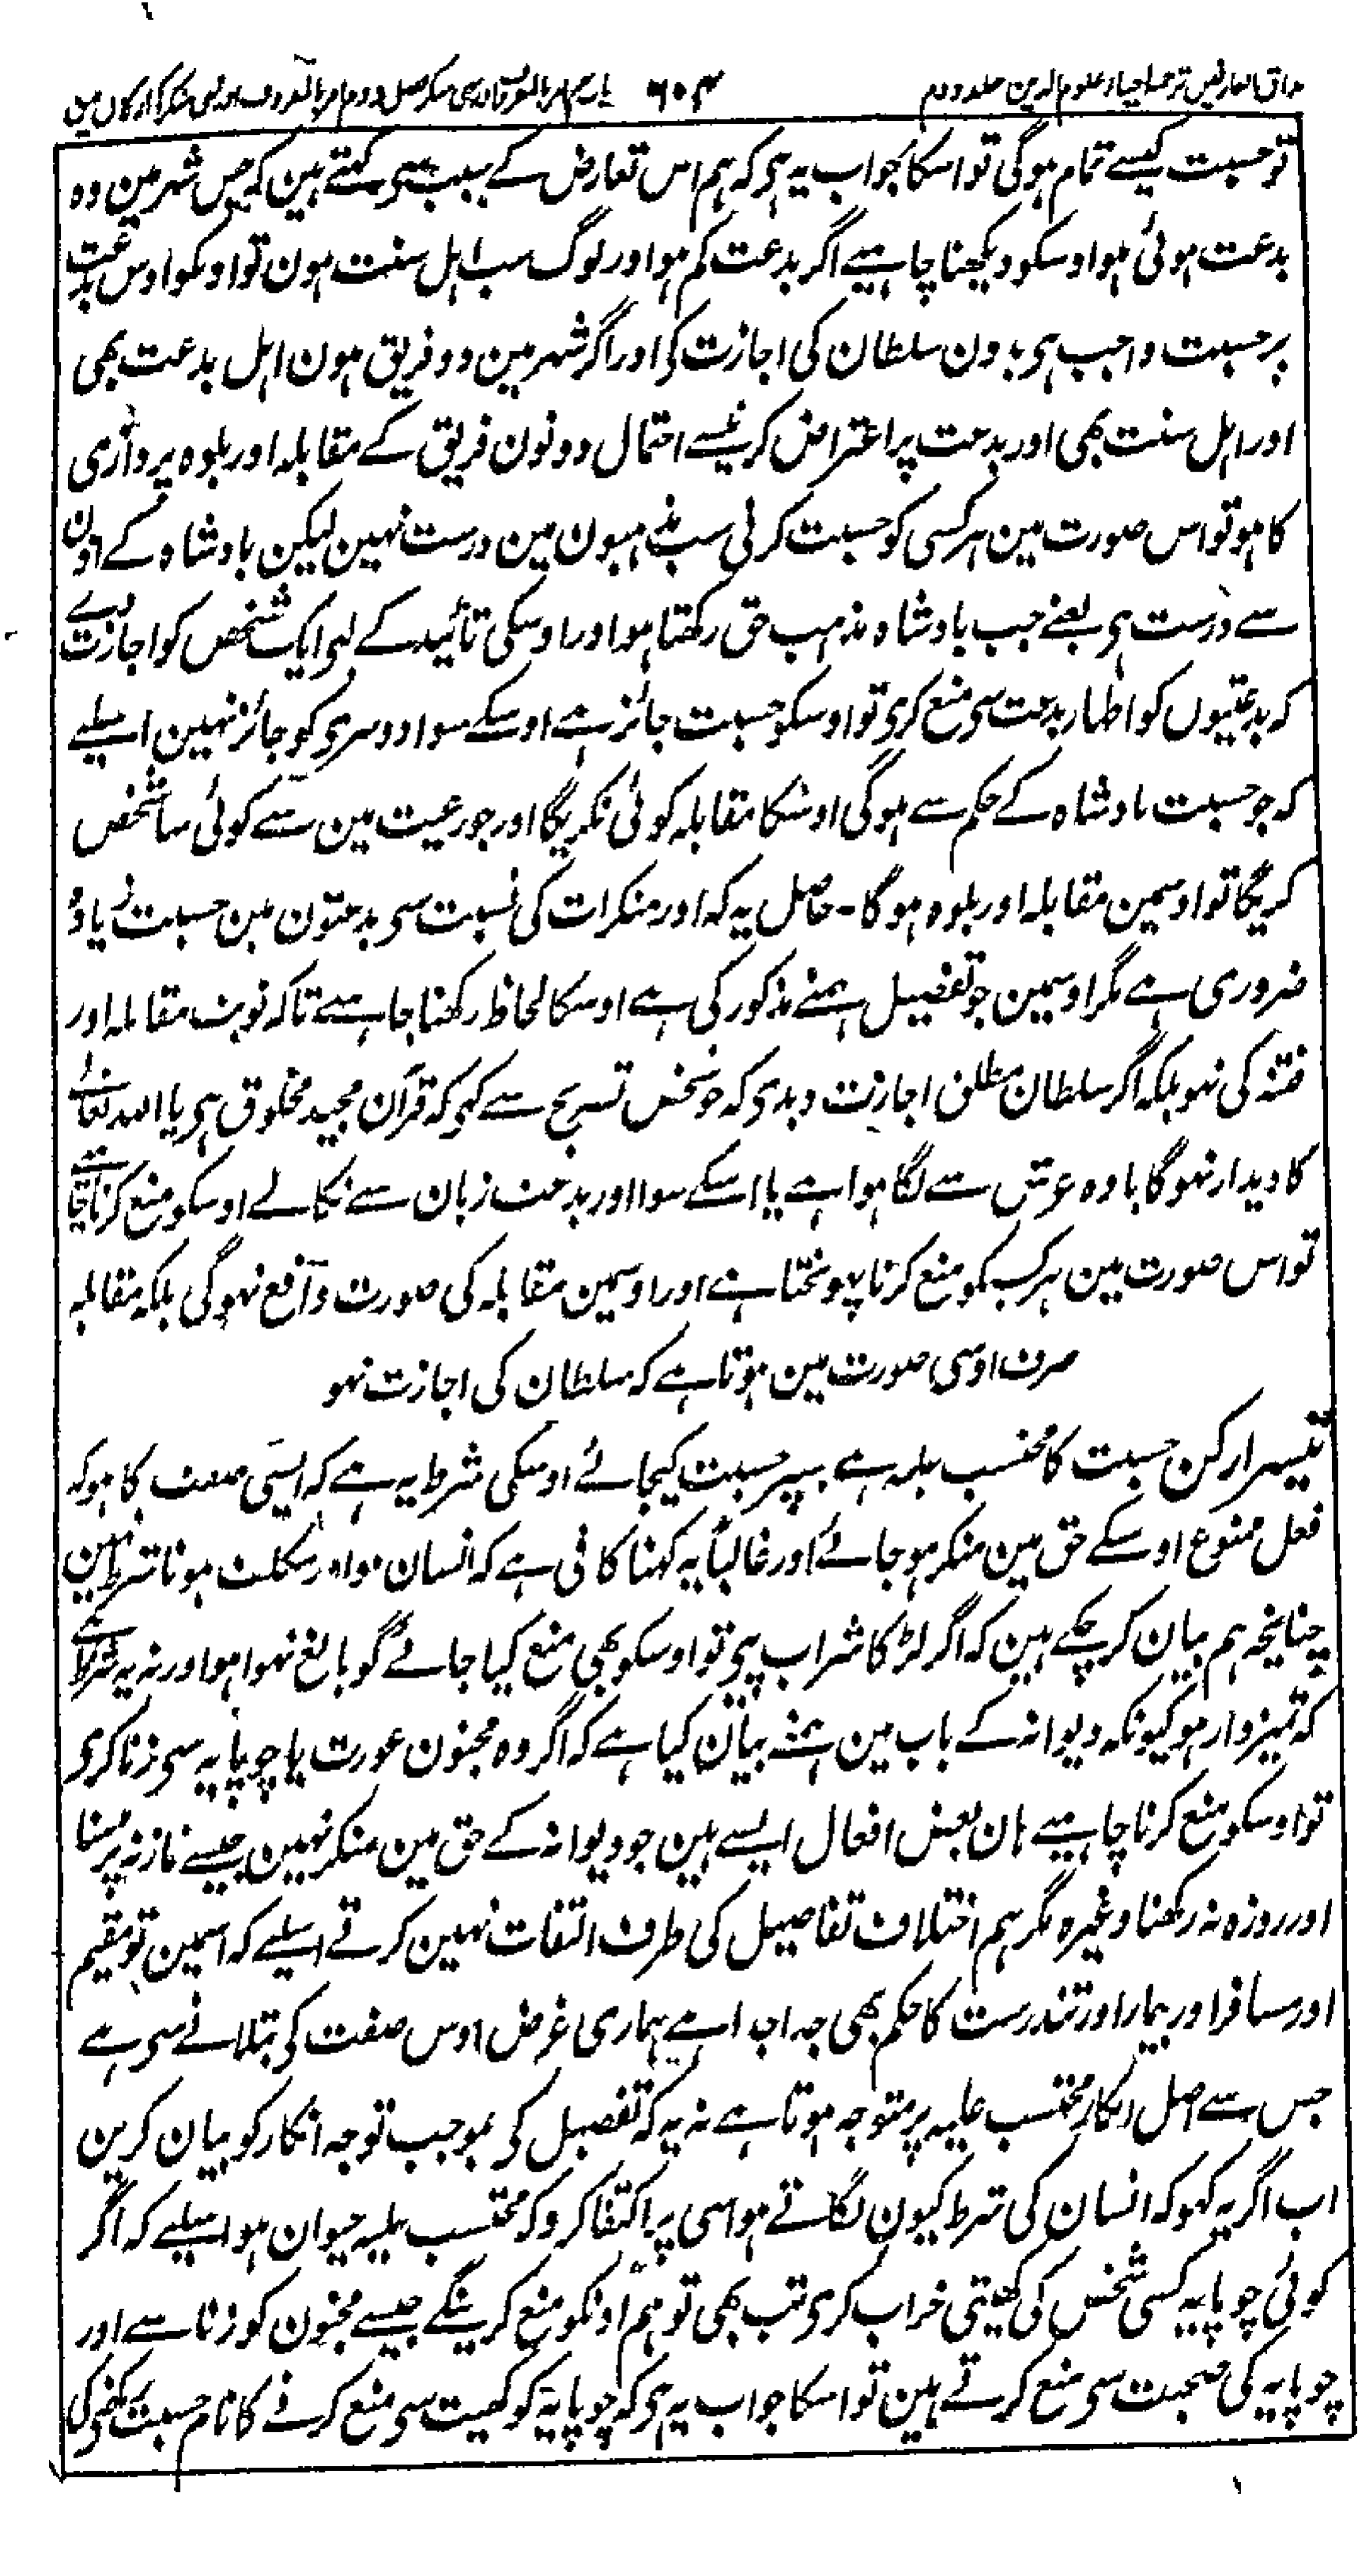 مذاق العارفین ترجمہ احیاء علوم الدین جلد دوم ۶۰۴ باب نہم امر بالمعروف نہی منکر فصل دوم امر بالمعروف اور نہی منکر کے ارکان مین
تو حسبت کیسے تمام ہوگی تو اسکا جواب یہ ہی کہ ہم اس تعارض کے سبب سی کہتے ہین کہ جس شہر مین وہ
بدعت ہوئی ہو اوسکو دیکھنا چاہیے اگر بدعت کم ہو اور لوگ سب اہل سنت ہون تو اونکو اوس بدعت
پر حسبت واجب ہی بدون سلطان کی اجازت کی اور اگر شہر مین دو فریق ہون اہل بدعت بھی
اور اہل سنت بھی اور بدعت پر اعتراض کرنیسے احتمال دونون فریق کے مقابلہ اور بلوہ پردازی
کا ہو تو اس صورت مین ہر کسی کو حسبت کرنی سب مذہبون مین درست نہین لیکن بادشاہ کے اذن
سے درست ہی یعنے جب بادشاہ مذہب حق رکھتا ہو اور اوسکی تائید کے لیے ایک شخص کو اجازت دے
کہ بدعتیوں کو اظہار بدعت سی منع کری تو اوسکو حسبت جائز ہے اوسکے سوا دوسری کو جائز نہین اسلیے
کہ جو حسبت بادشاہ کے حکم سے ہوگی اوسکا مقابلہ کوئی نکریگا اور جو رعیت مین سے کوئی سا شخص
کریگا تو اوسمین مقابلہ اور بلوہ ہوگا۔ حاصل یہ کہ اور منکرات کی نسبت سی بدعتون مین حسبت زیادہ
ضروری ہے مگر اوسمین جو تفصیل ہمنے مذکور کی ہے اوسکا لحاظ رکھنا چاہیے تاکہ نوبت مقابلہ اور
فتنہ کی نہو بلکہ اگر سلطان مطلق اجازت دیدی کہ جو شخص تصریح سے کہی کہ قرآن مجید مخلوق ہی یا اللہ تعالے
کا دیدار نہوگا یا وہ عرش سے لگا ہوا ہے یا اسکے سوا اور بدعت زبان سے نکالے اوسکو منع کرنا چاہیے
تو اس صورت مین ہر کسیکو منع کرنا پہونختا ہے اور اوسمین مقابلہ کی صورت واقع نہوگی بلکہ مقابلہ
صرف اوسی صورت مین ہوتا ہے کہ سلطان کی اجازت نہو
تیسرا رکن حسبت کا محتسب علیہ ہے جسپر حسبت کیجائے اوسکی شرط یہ ہے کہ ایسی صفت کا ہو کہ
فعل ممنوع اوسکے حق مین منکر ہو جائے اور غالباً یہ کہنا کافی ہے کہ انسان ہو اور مکلف ہونا شرط نہین
چنانچہ ہم بیان کر چکے ہین کہ اگر لڑکا شراب پیے تو اوسکو بھی منع کیا جائے گو بالغ نہوا ہو اور نہ یہ شرط ہے
کہ تمیزدار ہو کیونکہ دیوانہ کے باب مین ہمنے بیان کیا ہے کہ اگر وہ مجنون عورت یا چوپایہ سی زنا کری
تو اوسکو منع کرنا چاہیے ہان بعض افعال ایسے ہین جو دیوانہ کے حق مین منکر نہین جیسے نماز نہ پڑھنا
اور روزہ نہ رکھنا وغیرہ مگر ہم اختلاف تفاصیل کی طرف التفات نہین کرتے اسلیے کہ اسمین تو مقیم
اور مسافر اور بیمار اور تندرست کا حکم بھی جدا جدا ہے ہماری غرض اوس صفت کی بتلانے سی ہے
جس سے اصل انکار محتسب علیہ پر متوجہ ہوتا ہے نہ یہ کہ تفصیل کی بموجب توجہ انکار کو بیان کرین
اب اگر یہ کہو کہ انسان کی شرط کیون لگاتے ہو اسی پر اکتفا کرو کہ محتسب علیہ حیوان ہو اسلیے کہ اگر
کوئی چوپایہ کسی شخص کی کھیتی خراب کری تب بھی تو ہم اونکو منع کرینگے جیسے مجنون کو زنا سے اور
چوپایہ کی صحبت سی منع کرتے ہین تو اسکا جواب یہ ہی کہ چوپایہ کو کھیت سی منع کرنے کا نام حسبت رکھنی کی